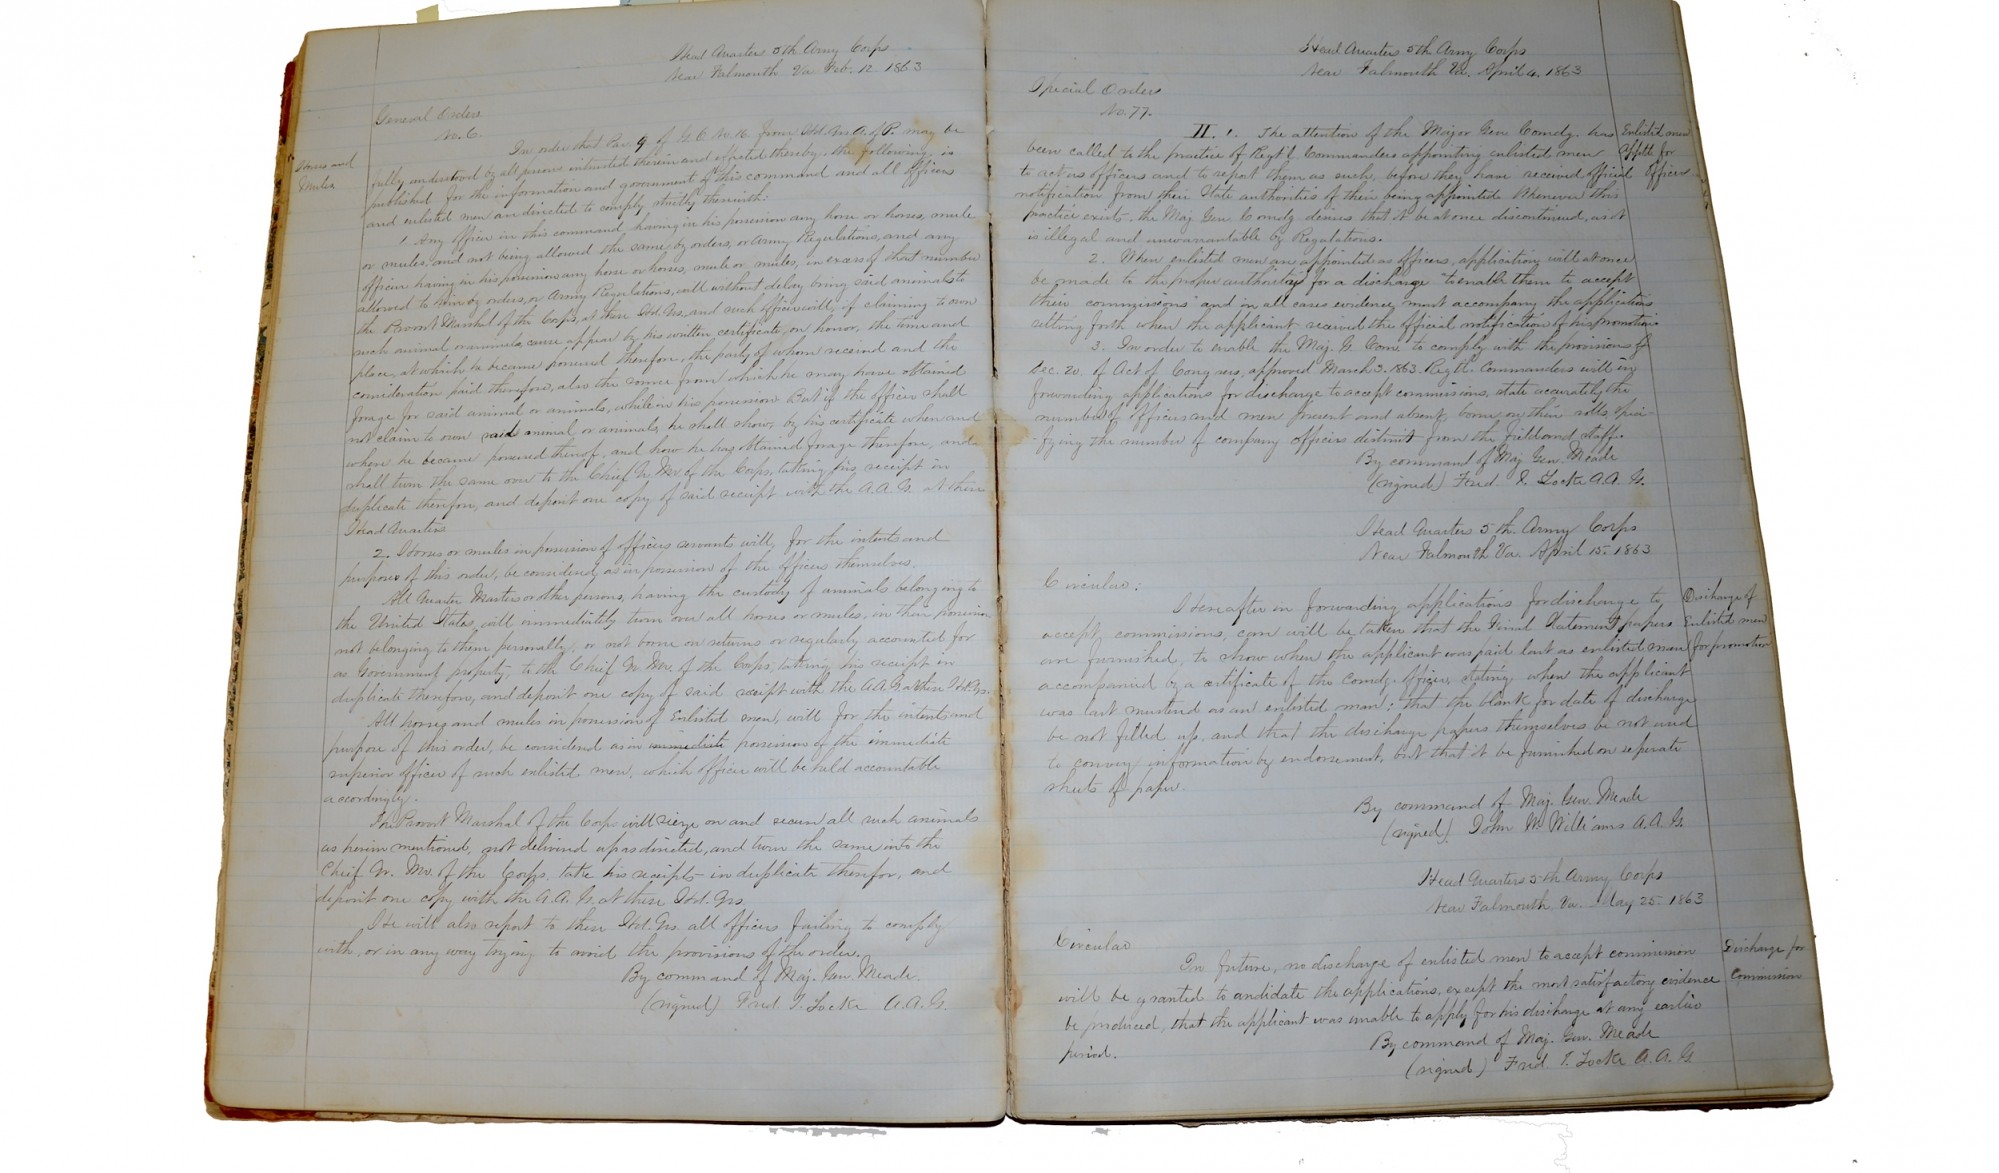 Head Quarters 5th Army Corps
Near Falmouth Va Feb. 12 1863
General Orders
No. 6.
Horses and
Mules
In order that Par. 9 of G.O. No. 16 from Hd. Qrs. A. of P. may be
fully understood by all persons intrusted therein and affected thereby, the following is
published for the information and government of this command and all officers
and enlisted men are directed to comply strictly therewith:
1. Any officer in this command, having in his possession any horse or horses, mule
or mules, and not being allowed the same by orders, or Army Regulations, and any
officer having in his possession any horse or horses, mule or mules, in excess of that number
allowed to him by orders, or Army Regulations, will without delay bring said animals to
the Provost Marshal of the Corps, at these Hd. Qrs. and such officer will, if claiming to own
such animal or animals, cause appear by his written certificate, on honor, the time and
place, at which he became possessed therefore, the party of whom received and the
consideration paid therefore, also the source from which he may have obtained
forage for said animal or animals, while in his possession But if the officer shall
not claim to own said animal or animals, he shall show, by his certificate when and
where he became possessed thereof, and how he has obtained forage therefore, and
shall turn the same over to the Chief Qr. Mr. of the Corps, taking his receipt in
duplicate therefore, and deposit one copy of said receipt with the A.A.G. at these
Head Quarters
2. Horses or mules in possession of officers servants will, for the intents and
purposes of this order, be considered, as in possession of the officers themselves.
All Quarter Masters or other persons, having the custody of animals belonging to
the United States, will immediately turn over all horses or mules, in their possession
not belonging to them personally, or not borne on returns or regularly accounted for
as Government property, to the Chief Qr. Mr. of the Corps, taking his receipt in
duplicate therefore, and deposit one copy of said receipt with the A.A.G. at these Hd. Qrs.
All horses and mules in possession of Enlisted men, will for the intents and
purpose of this order, be considered as in immediate possession of the immediate
superior officer of such enlisted men, which officer will be held accountable
accordingly.
The Provost Marshal of the Corps will seize on and secure all such animals
as herein mentioned, not delivered up as directed, and turn the same into the
Chief Qr. Mr. of the Corps, take his receipts in duplicate therefor, and
deposit one copy with the A.A.G. at these Hd. Qrs.
He will also report to these Hd. Qrs. all officers failing to comply
with, or in any way trying to avoid the provisions of the order.
By command of Maj. Gen Meade.
(signed) Fred T. Locke A.A.G.
Head Quarters 5th Army Corps
Near Falmouth Va. April 4, 1863
Special Orders
No. 77.
II. 1. The attention of the Major Gen Comdg. has
been called to the practice of Regt'l Commanders appointing enlisted men
to act as officers and to report them as such, before they have received official
notification from their State authorities of their being appointed Whenever this
practice exists, the Maj Gen Comdg desires that it be at once discontinued, as it
is illegal and unwarrantable by Regulations.
Enlisted men
apptd for
Officers
2. When enlisted men are appointed as officers, application will at once
be made to the proper authority for a discharge "to enable them to accept
their commissions" and in all cases evidence must accompany the application
setting forth when the applicant received the official notification of his promotion
3. In order to enable the Maj. G. Come to comply with the provisions of
Sec. 20. of Act of Congress, approved March 3. 1863. Regtl. Commanders will in
forwarding applications for discharge to accept commissions, state accurately the
number of officers and men present and absent, borne on their rolls, speci-
-fying the number of company officers distinct from the field and staff.
By command of Maj Gen. Meade
(signed) Fred T. Locke A.A.G.
Head Quarters 5th Army Corps
Near Falmouth Va. April 15. 1863
Circular:
Hereafter in forwarding applications for discharge to
accept commissions, care will be taken that the Final Statement papers
are furnished, to show when the applicant was paid last as enlisted man
accompanied by a certificate of the Comdg. Officer, stating when the applicant
was last mustered as an enlisted man; that the blank for date of discharge
be not filled up, and that the discharge papers themselves be not used
to convey information by endorsement, but that it be furnished on seperate
sheets of paper.
Discharge of
Enlisted men
for promotion
By command of Maj. Gen. Meade
(signed). John W. Williams A.A.G.
Head Quarters 5th Army Corps
Near Falmouth, Va. May 25. 1863
Circular
In future, no discharge of enlisted men to accept commission
will be granted to andidate the applications, except the most satisfactory evidence
be produced, that the applicant was unable to apply for his discharge at any earlier
period.
Discharge for
Commission
By command of Maj. Gen. Meade
(signed) Fred. T. Locke A.A.G.